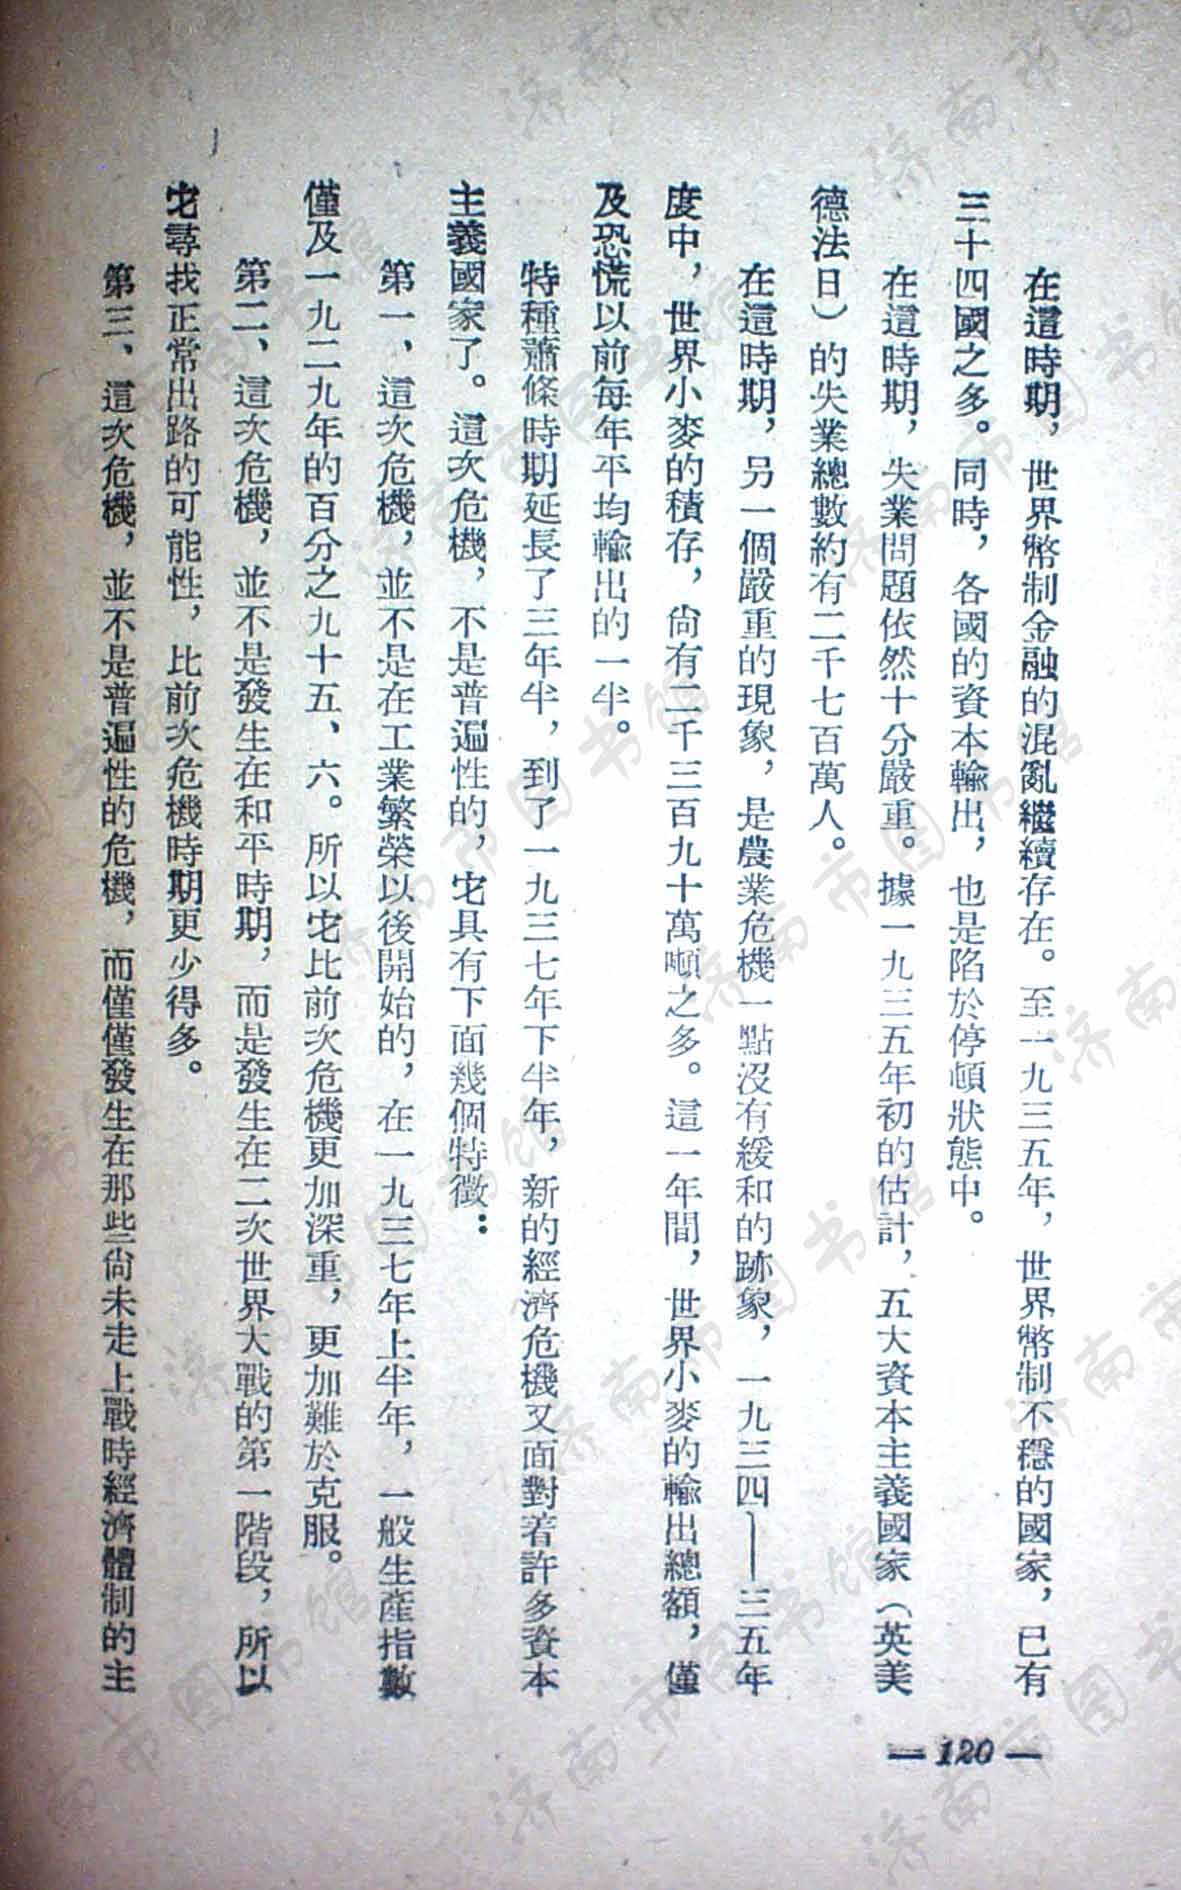 在這時期，世界幣制金融的混亂繼續存在。至一九三五年，世界幣制不穩的國家，已有
三十四國之多。同時，各國的資本輸出，也是陷於停頓狀態中。
在這時期，失業問題依然十分嚴重。據一九三五年初的估計，五大資本主義國家（英美
德法日）的失業總數約有二千七百萬人。
在這時期，另一個嚴重的現象，是農業危機一點沒有緩和的跡象，一九三四——三五年
度中，世界小麥的積存，尙有二千三百九十萬噸之多。這一年間，世界小麥的輸出總額，僅
及恐慌以前每年平均輸出的一半。
特種蕭條時期延長了三年半，到了一九三七年下半年，新的經濟危機又面對着許多資本
主義國家了。這次危機，不是普遍性的，它具有下面幾個特徵：
第一、這次危機，並不是在工業繁榮以後開始的，在一九三七年上半年，一般生產指數
僅及一九二九年的百分之九十五、六。所以它比前次危機更加深重，更加難於克服。
第二、這次危機，並不是發生在和平時期，而是發生在二次世界大戰的第一階段，所以
它尋找正常出路的可能性，比前次危機時期更少得多。
第三、這次危機，並不是普遍性的危機，而僅僅發生在那些尙未走上戰時經濟體制的主
— 120 —
济南市图书馆